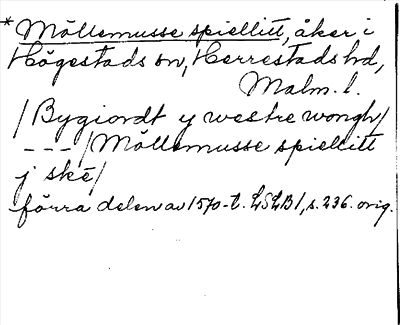 *Möllemusse spiellitt, åker i
Högestads sn, Herrestads hd,
Malm. l.
/Bygiordt y westre wongh/
---/Möllemusse spiellitt
j ske/
förra delen av 1570-t. LSLB1, s. 236. orig.